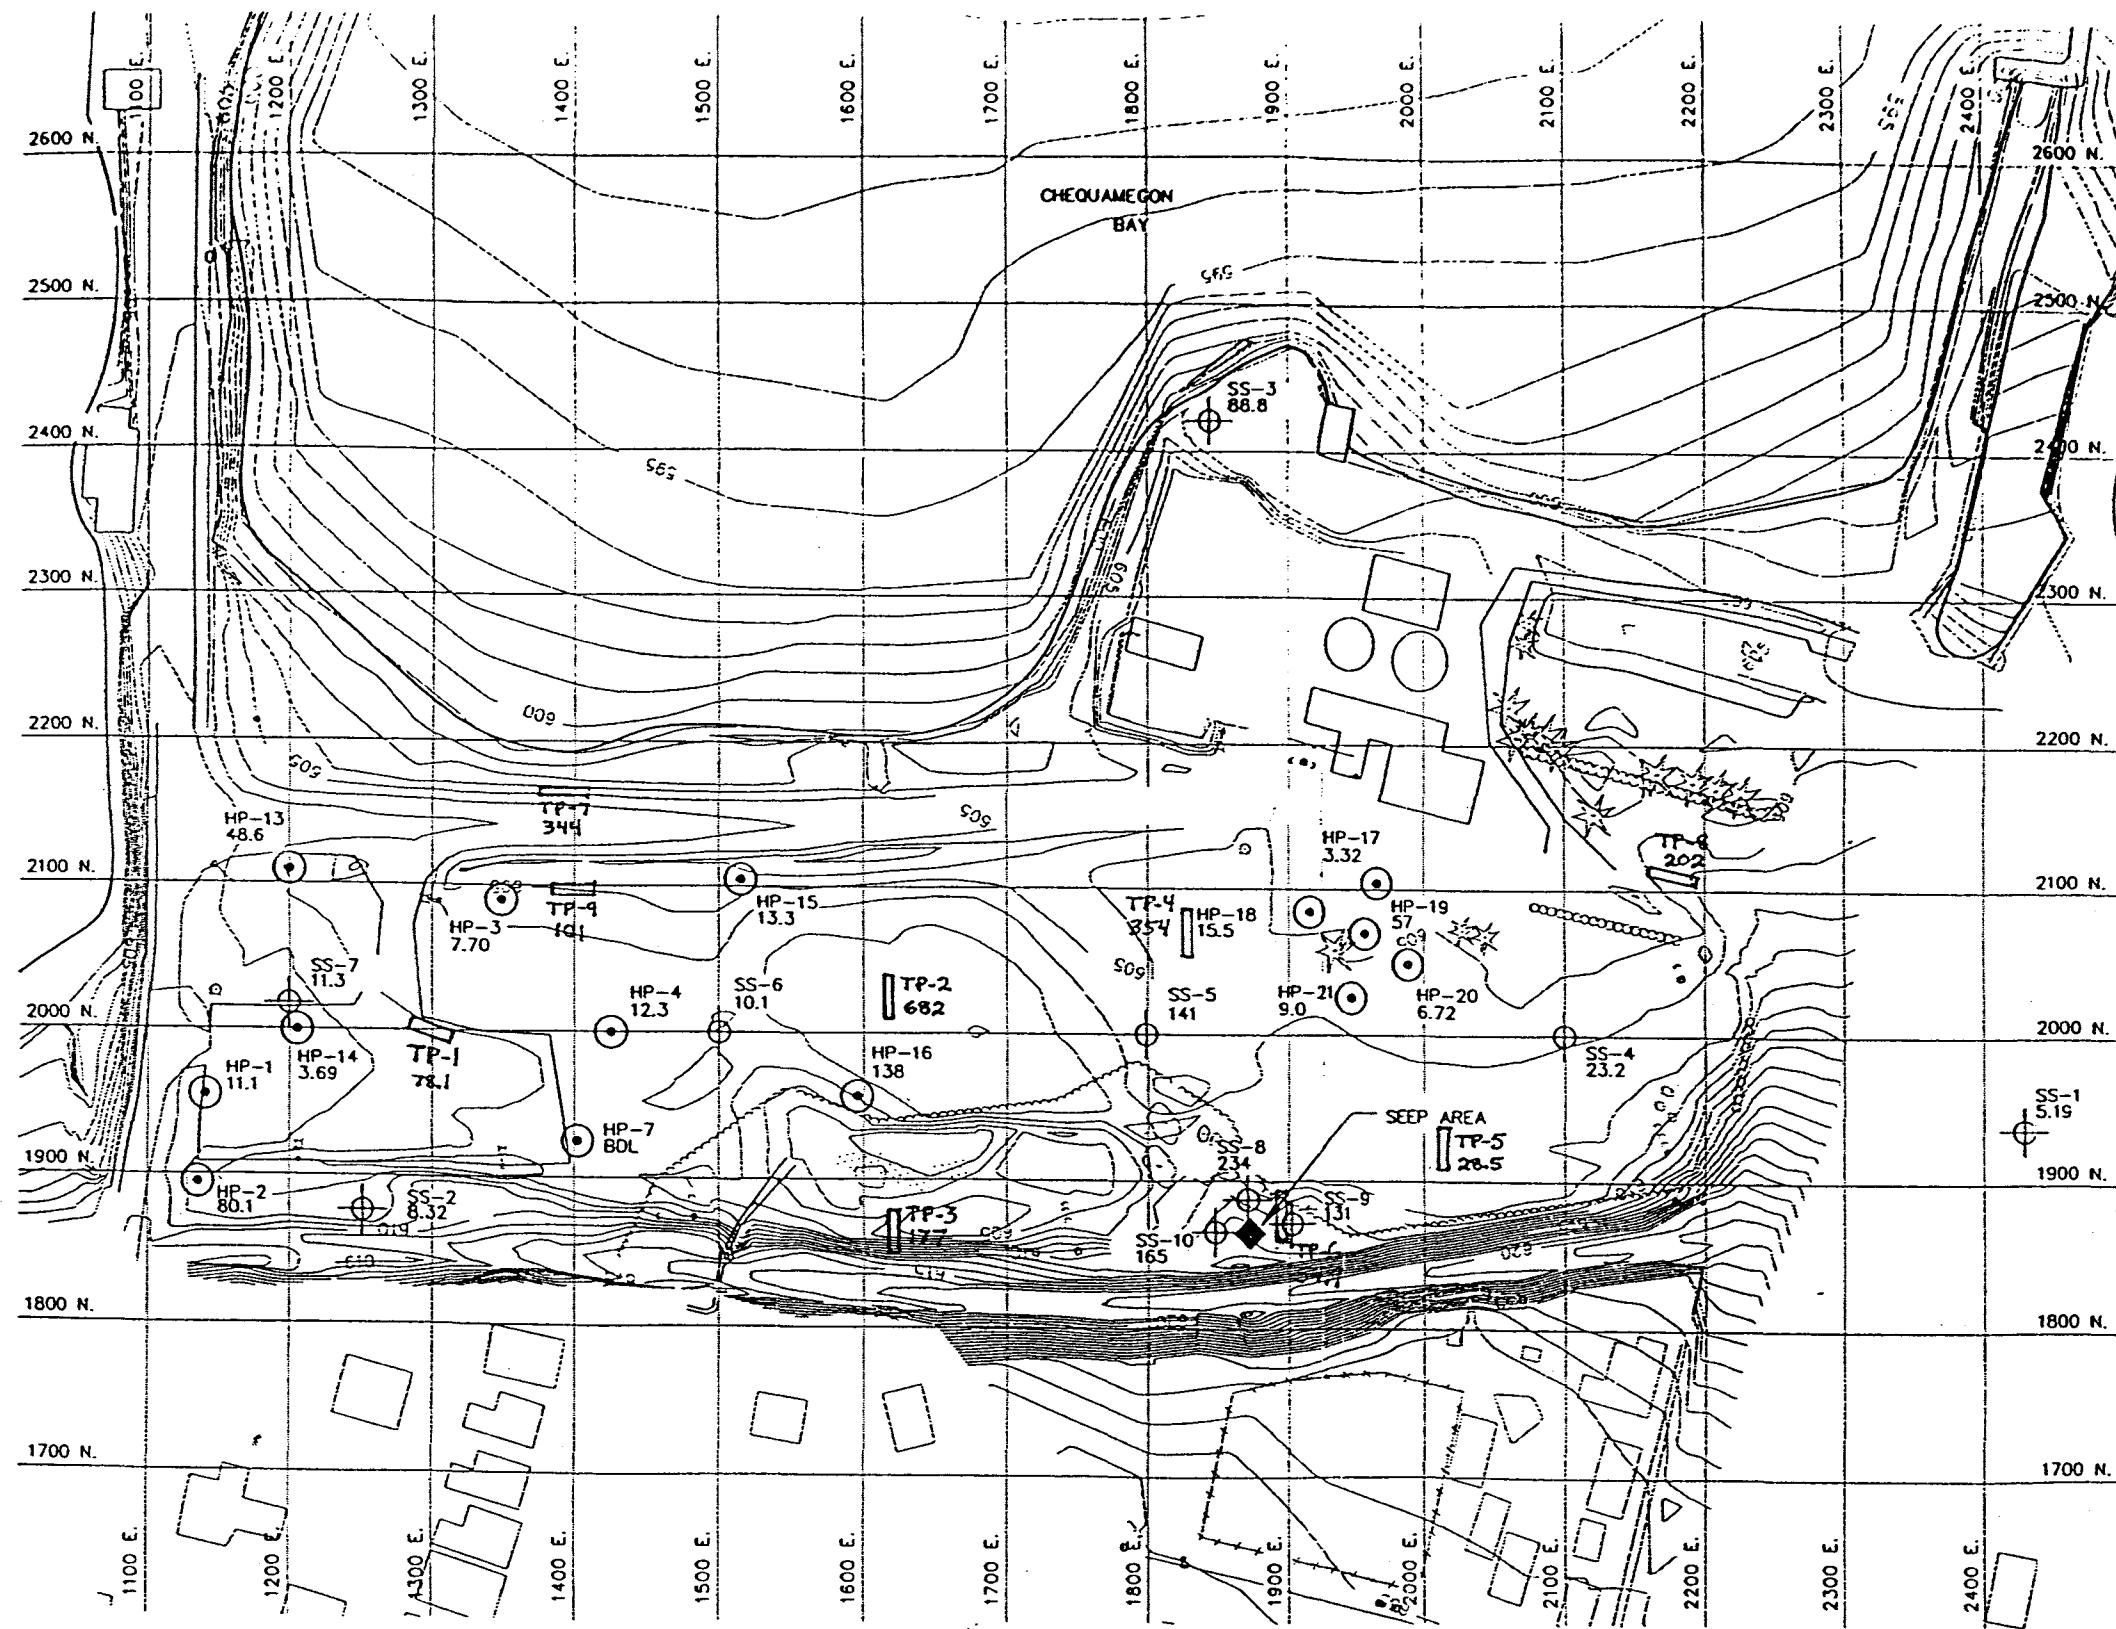 1100 E.
1200 E.
1300 E.
1400 E.
1500 E.
1600 E.
1700 E.
1800 E.
1900 E.
2000 E.
2100 E.
2200 E.
2300 E.
2400 E.
595
2600 N.
2600 N.
CHEQUAMEGON
BAY
595
2500 N.
2500 N.
SS-3
88.8
2400 N.
2400 N.
595
605
2300 N.
2300 N.
600
2200 N.
2200 N.
605
TP-7
344
605
HP-13
48.6
HP-17
3.32
TP-8
202
2100 N.
2100 N.
HP-3
7.70
TP-9
101
HP-15
13.3
TP-4
354
HP-18
15.5
HP-19
57
605
SS-7
11.3
HP-4
12.3
SS-6
10.1
TP-2
682
SS-5
141
HP-21
9.0
HP-20
6.72
2000 N.
2000 N.
HP-1
11.1
HP-14
3.69
TP-1
78.1
HP-16
138
SS-4
23.2
SS-1
5.19
HP-7
BDL
SEEP AREA
TP-5
28.5
SS-8
234
1900 N.
1900 N.
HP-2
80.1
SS-2
8.32
610
TP-3
177
SS-9
131
SS-10
165
TP-6
620
615
1800 N.
1800 N.
1700 N.
1700 N.
1100 E.
1200 E.
1300 E.
1400 E.
1500 E.
1600 E.
1700 E.
1800 E.
1900 E.
2000 E.
2100 E.
2200 E.
2300 E.
2400 E.